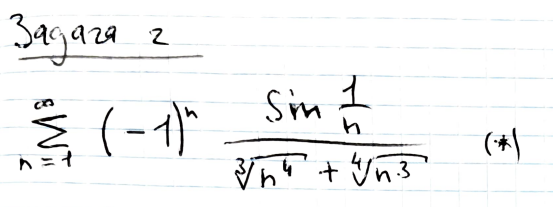 Задача 2
∞ ∑ n=1 (-1)ⁿ sin 1/n / (∛n⁴ + ∜n³) (*)